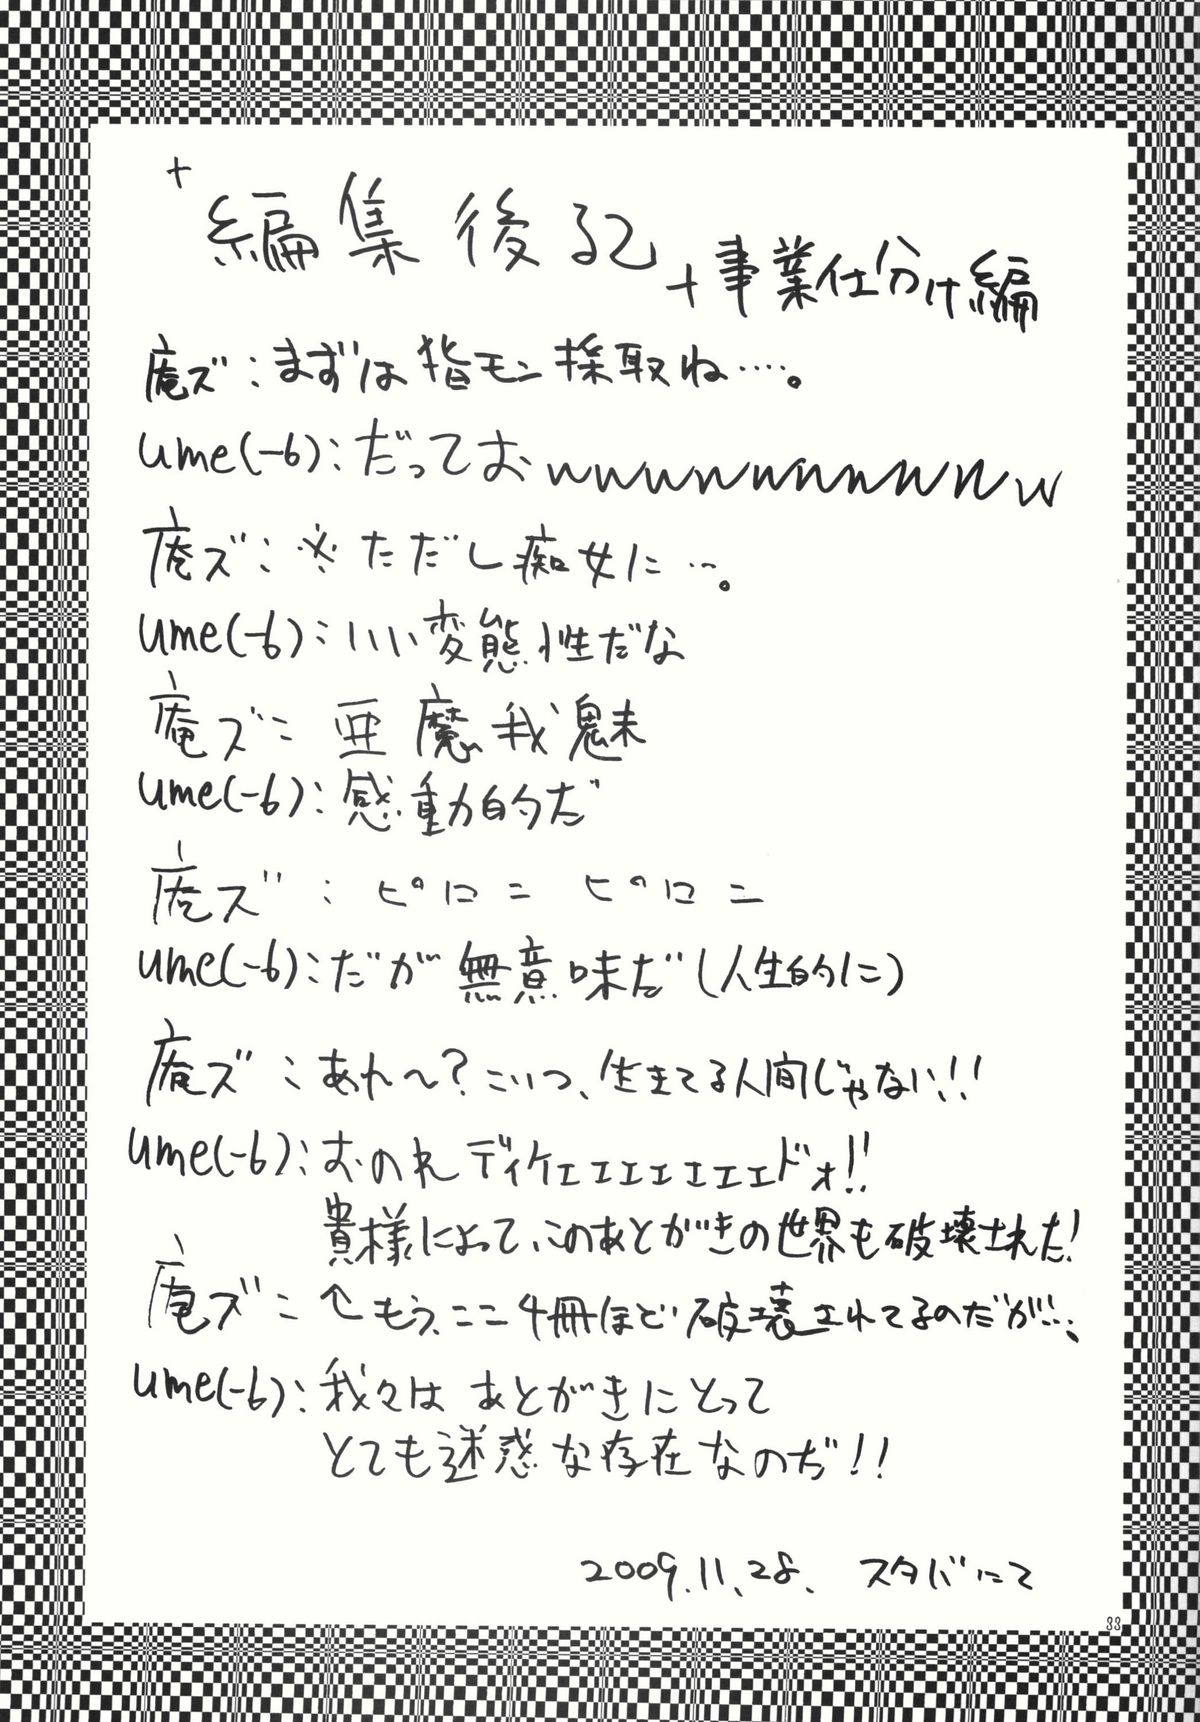 +
編集後記
+事業仕分け編
庵ズ:まずは指モン採取ね…。
ume(-6):だっておwwwwwwwwwww
庵ズ:※ただし痴女に…。
ume(-6):いい変態性だな
庵ズ:亜魔我魅
ume(-6):感動的だ
庵ズ:ピロニ ピロニ
ume(-6):だが無意味だ(人生的に)
庵ズ:あれ〜?こいつ、生きてる人間じゃない!!
ume(-6):おのれディケェェェェェェェドォ!!
貴様によって、このあとがきの世界も破壊された!
庵ズ:↑もう、ここ4冊ほど破壊されてるのだが…、
ume(-6):我々はあとがきにとって
とても迷惑な存在なのだ!!
2009.11.28. スタバにて
33